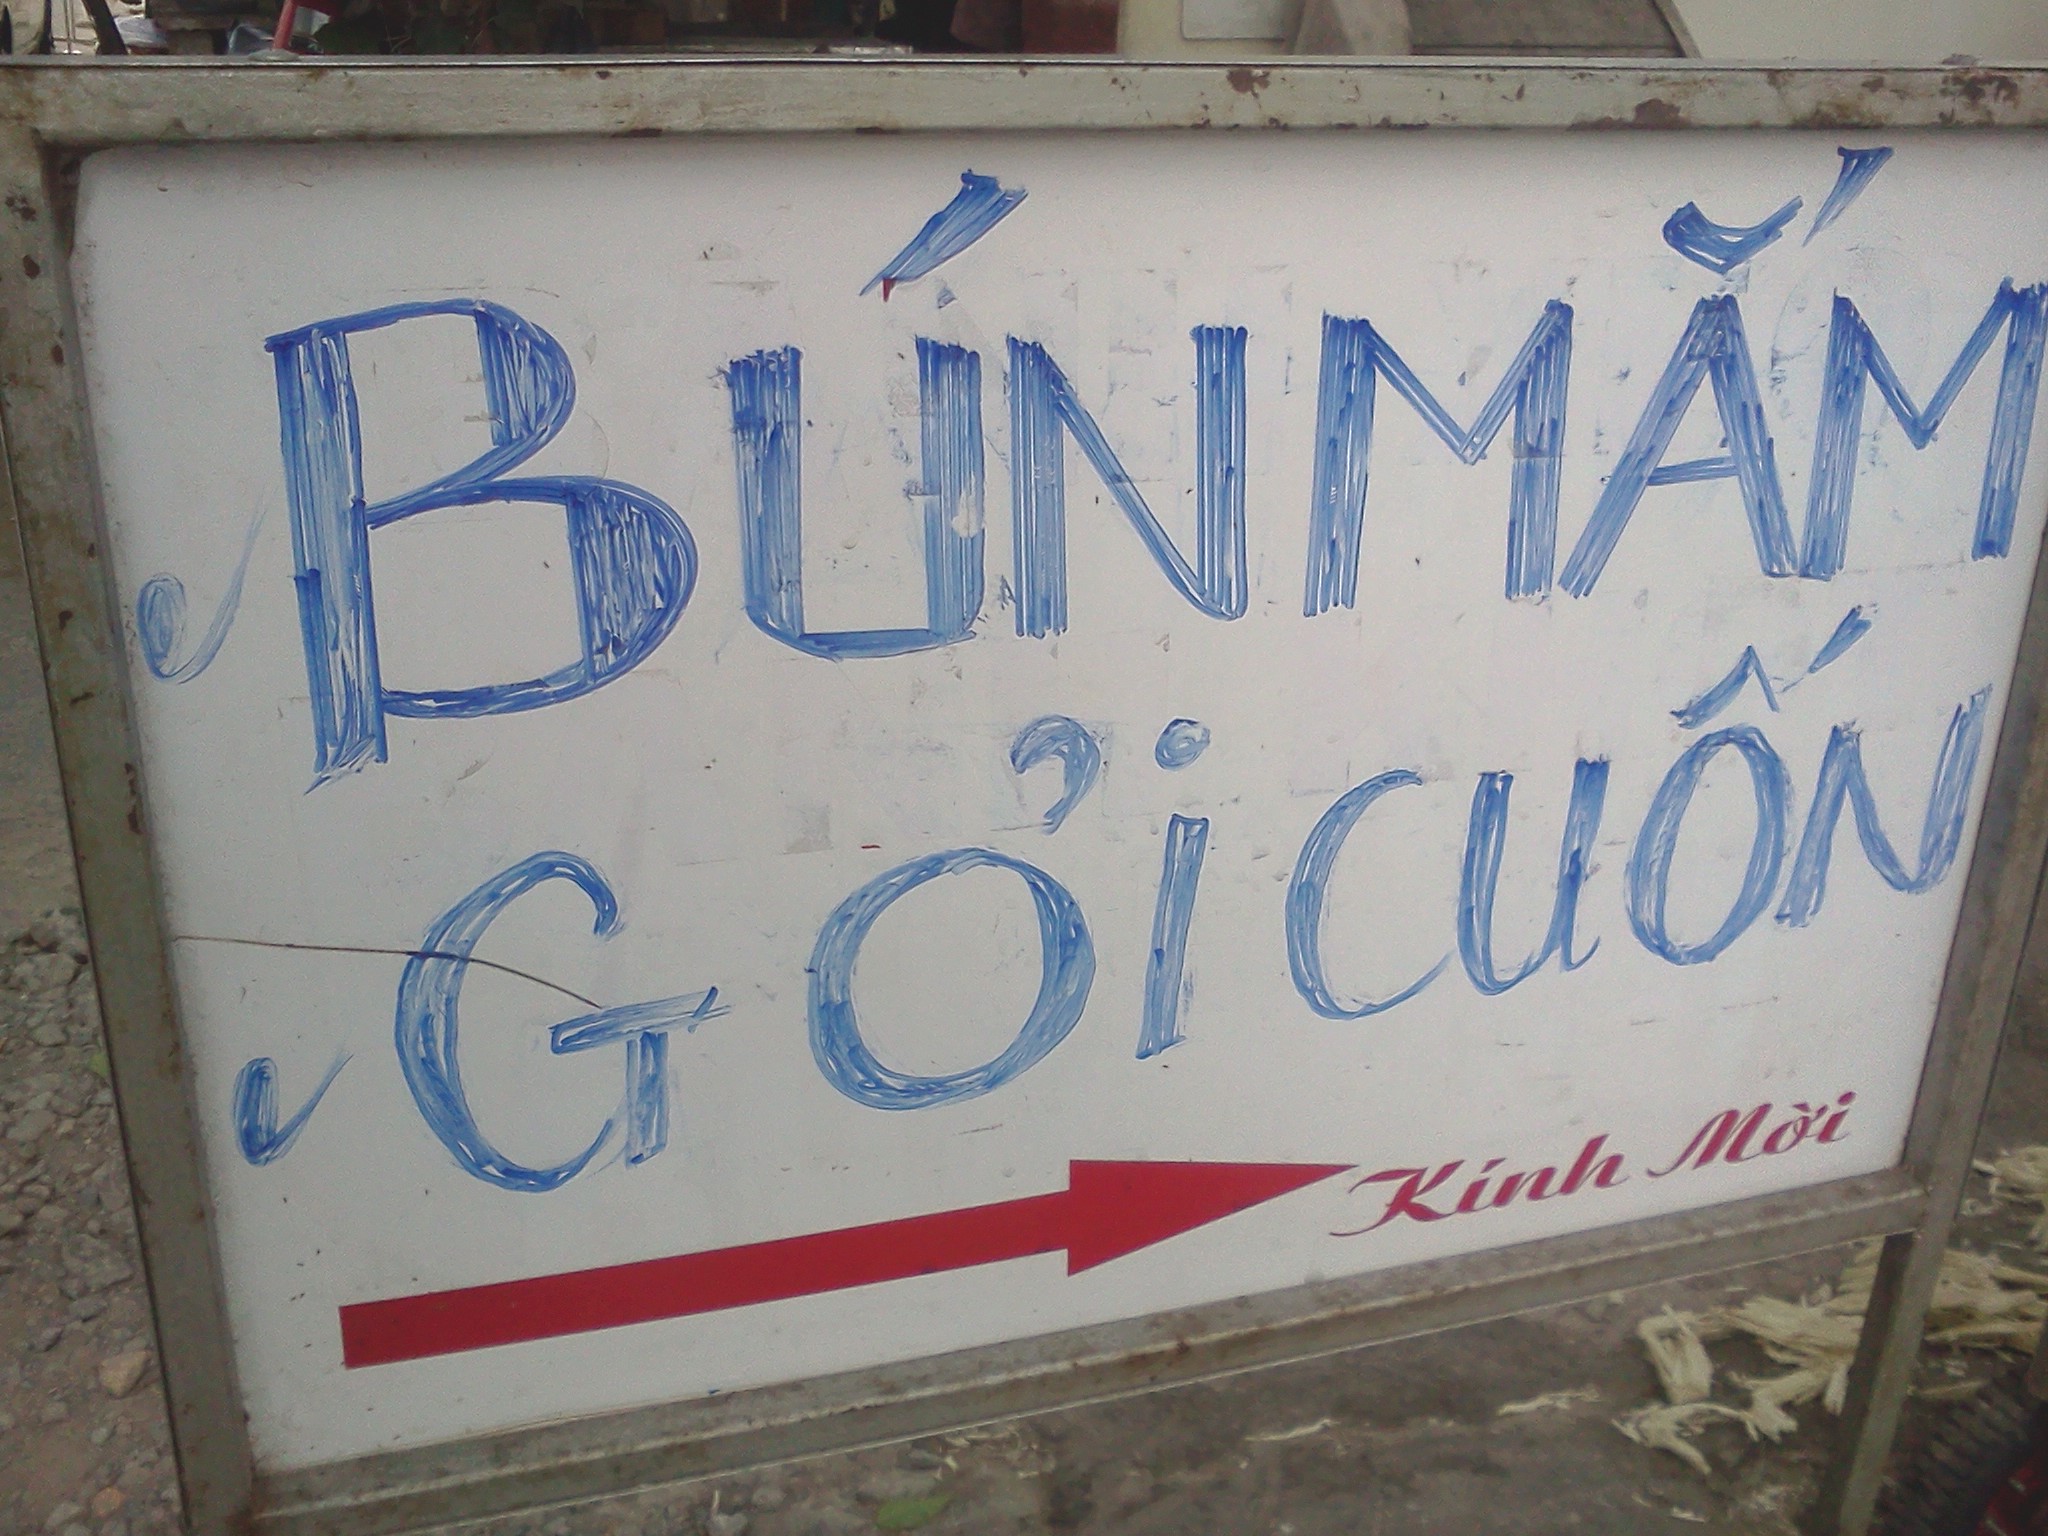 BÚN MẮM
GỎi CUỐN
Kính Mời